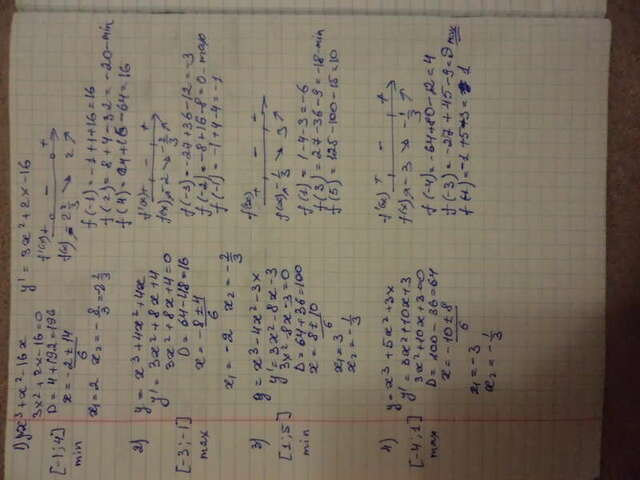 1) y = x³ + x² - 16x y' = 3x² + 2x - 16
[-1; 4] 3x² + 2x - 16 = 0
min D = 4 + 192 = 196
x = -2 ± 14 / 6
x₁ = 2 x₂ = -8/3 = -2 2/3
f'(x) + - +
f(x) -2 2/3 ↘ 2 ↗
f(-1) = -1 + 1 + 16 = 16
f(2) = 8 + 4 - 32 = -20 - min
f(4) = 64 + 16 - 64 = 16
2) y = x³ + 4x² + 4x
[-3; -1] y' = 3x² + 8x + 4
max 3x² + 8x + 4 = 0
D = 64 - 48 = 16
x = -8 ± 4 / 6
x₁ = -2 x₂ = -2/3
f'(x) + - +
f(x) ↗ -2 ↘ -2/3 ↗
f(-3) = -27 + 36 - 12 = -3
f(-2) = -8 + 16 - 8 = 0 - max
f(-1) = -1 + 4 - 4 = -1
3) y = x³ - 4x² - 3x
[1; 5] y' = 3x² - 8x - 3
min 3x² - 8x - 3 = 0
D = 64 + 36 = 100
x = 8 ± 10 / 6
x₁ = 3
x₂ = -1/3
f'(x) + - +
f(x) ↗ -1/3 ↘ 3 ↗
f(1) = 1 - 4 - 3 = -6
f(3) = 27 - 36 - 9 = -18 - min
f(5) = 125 - 100 - 15 = 10
4) y = x³ + 5x² + 3x
[-4; 1] y' = 3x² + 10x + 3
max 3x² + 10x + 3 = 0
D = 100 - 36 = 64
x = -10 ± 8 / 6
x₁ = -3
x₂ = -1/3
f'(x) + - +
f(x) ↗ -3 ↘ -1/3 ↗
f(-4) = -64 + 80 - 12 = 4
f(-3) = -27 + 45 - 9 = 9 max